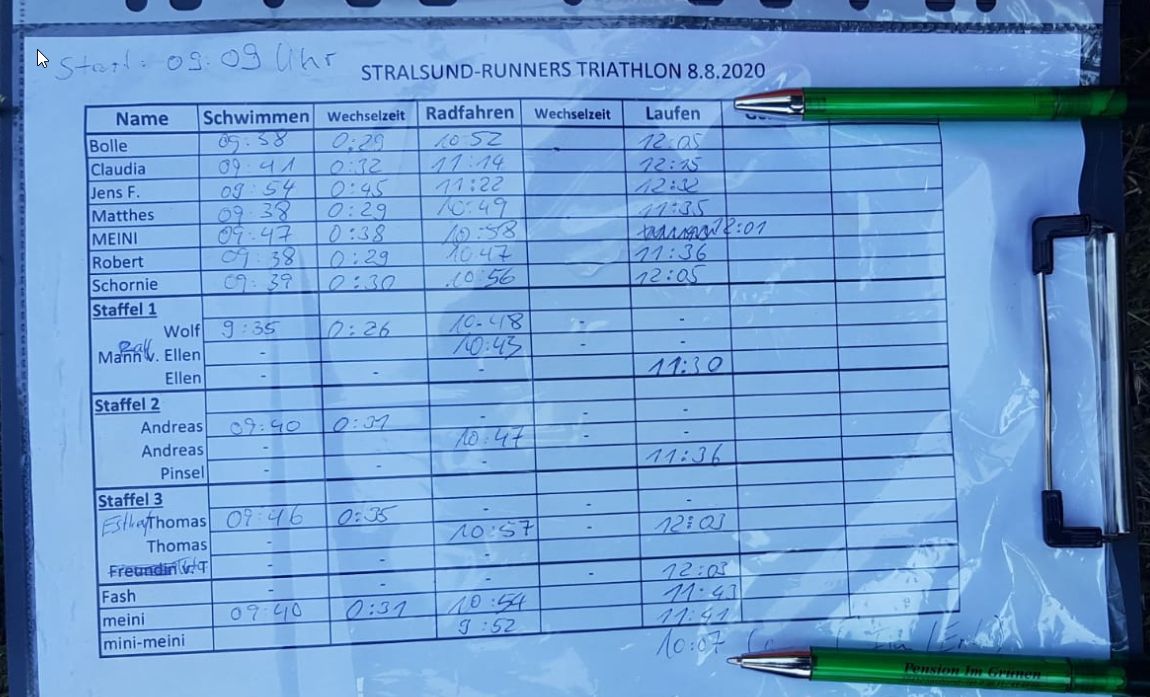 Start: 09:09 Uhr
STRALSUND-RUNNERS TRIATHLON 8.8.2020
Name Schwimmen Wechselzeit Radfahren Wechselzeit Laufen
Bolle 09:38 0:29 10:52 12:05
Claudia 09:41 0:32 11:14 12:15
Jens F. 09:54 0:45 11:22 12:32
Matthes 09:38 0:29 10:49 11:35
MEINI 09:47 0:38 10:58 12:01
Robert 09:38 0:29 10:47 11:36
Schornie 09:39 0:30 10:56 12:05
Staffel 1
Wolf 9:35 0:26 10:48 - -
Mann v. Ellen - 10:43 - -
Ellen - - - 11:30
Staffel 2 -
Andreas 09:40 0:31 - - -
Andreas - 10:47 -
Pinsel - - - 11:36
Staffel 3 -
Thomas 09:46 0:35 - - -
Thomas - 10:57 - 12:03
Freundin v. T - - -
Fash - - - - 12:03
meini 09:40 0:31 10:54 11:43
mini-meini 9:52 11:41
10:07
Pension Im Grünen